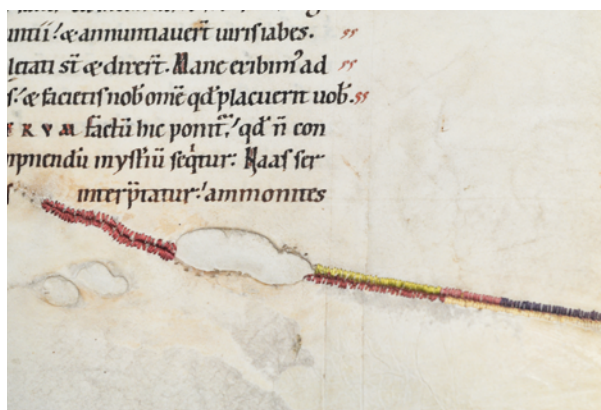 untii! & annuntiauer̄t uiris iabes.
letati st̄ & dixer̄t. Mane exibim᷒ ad
s! & facietis nob̄ om̄e qd̄ placuerit uob̄.
RVM factū hic ponit̄,! qd̄ n̄ con
myst̄iū seq̄tur: Naas ser
interp̄tatur! ammonites